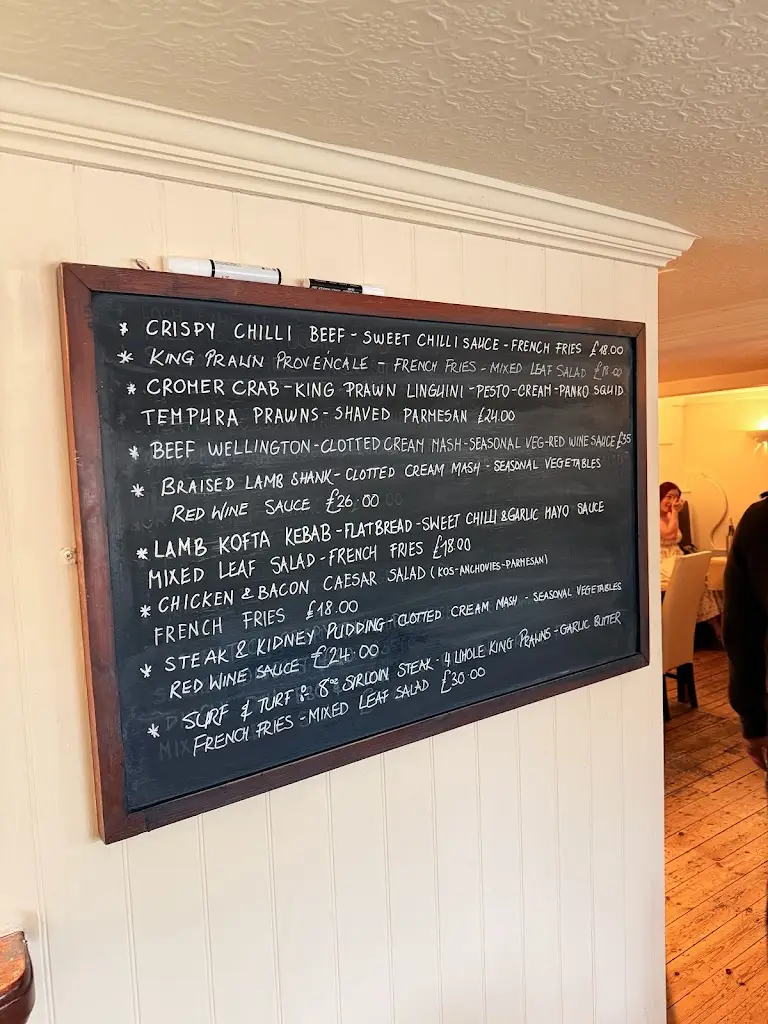 * CRISPY CHILLI BEEF - SWEET CHILLI SAUCE - FRENCH FRIES £18.00
* KING PRAWN PROVENCALE - FRENCH FRIES - MIXED LEAF SALAD £18.00
* CROMER CRAB - KING PRAWN LINGUINI - PESTO - CREAM - PANKO SQUID
TEMPURA PRAWNS - SHAVED PARMESAN £24.00
* BEEF WELLINGTON - CLOTTED CREAM MASH - SEASONAL VEG - RED WINE SAUCE £35
* BRAISED LAMB SHANK - CLOTTED CREAM MASH - SEASONAL VEGETABLES
RED WINE SAUCE £26.00
* LAMB KOFTA KEBAB - FLATBREAD - SWEET CHILLI & GARLIC MAYO SAUCE
MIXED LEAF SALAD - FRENCH FRIES £18.00
* CHICKEN & BACON CAESAR SALAD (KOS-ANCHOVIES-PARMESAN)
FRENCH FRIES £18.00
* STEAK & KIDNEY PUDDING - CLOTTED CREAM MASH - SEASONAL VEGETABLES
RED WINE SAUCE £24.00
* SURF & TURF : 8oz SIRLOIN STEAK - 4 WHOLE KING PRAWNS - GARLIC BUTTER
FRENCH FRIES - MIXED LEAF SALAD £30.00